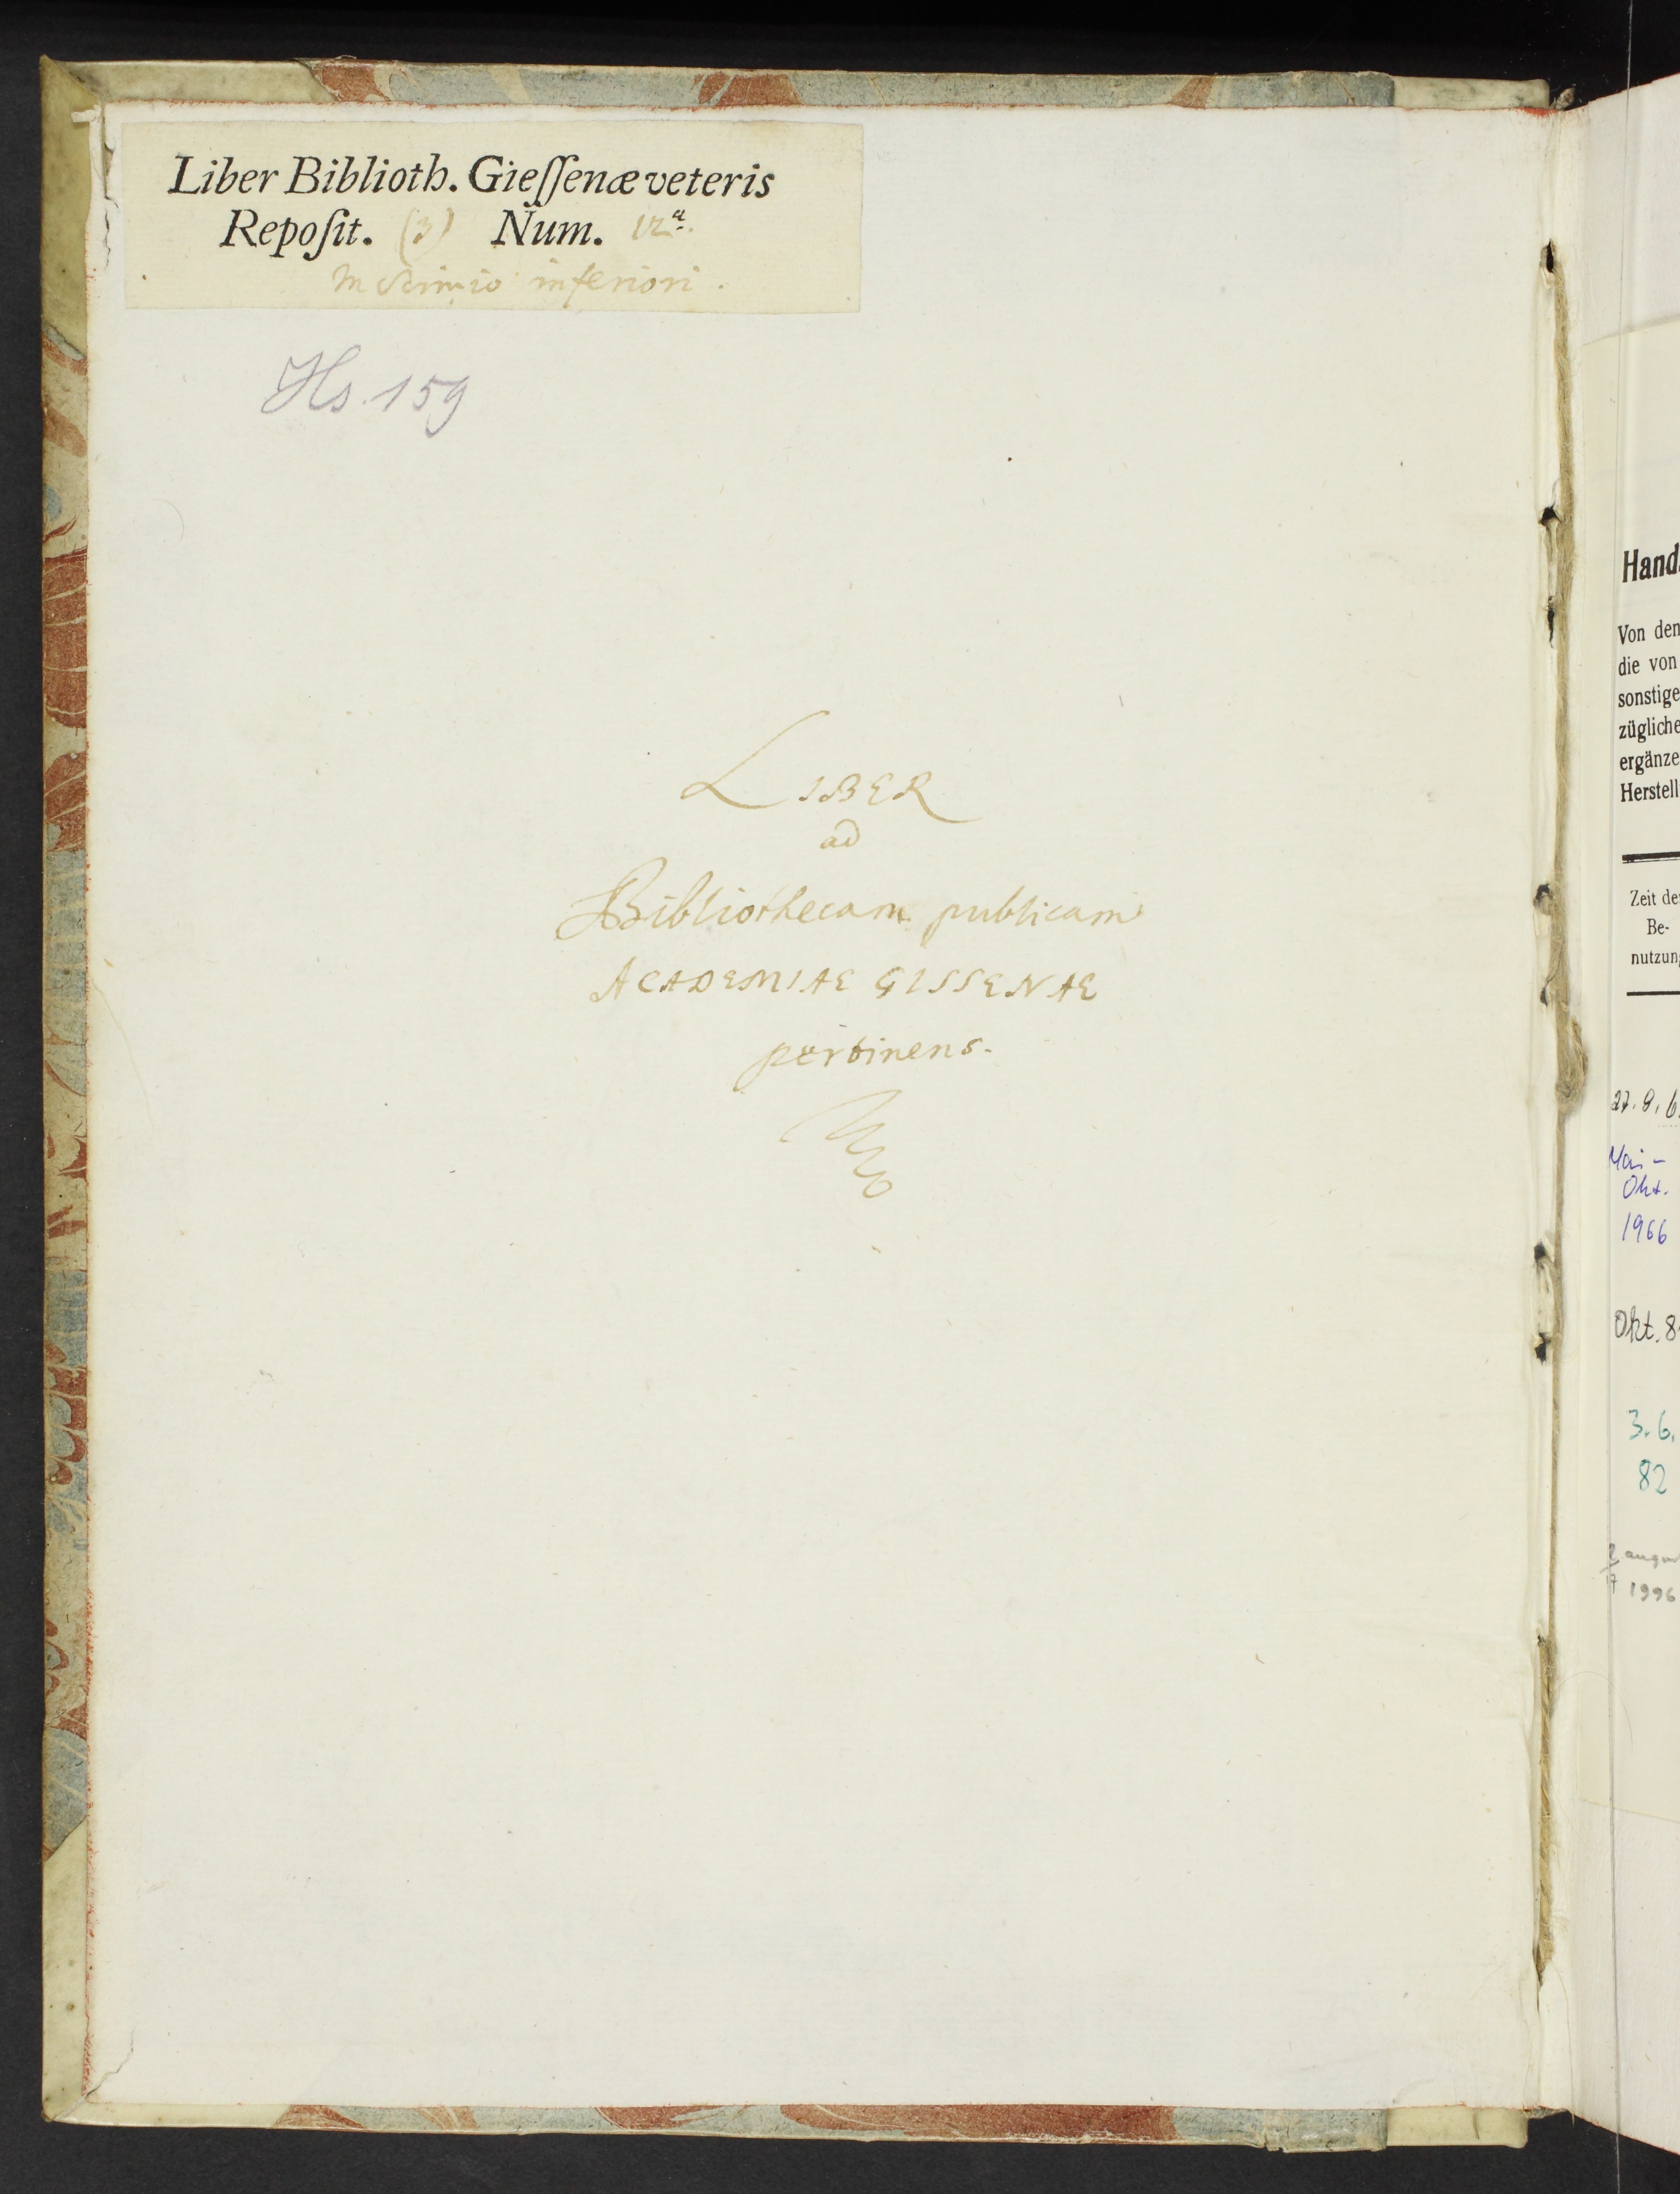 Liber Biblioth. Gieſſenæ veteris
Repoſit. (3) Num. 12ª.
in Scrinio inferiori.
Hs. 159
LIBER
ad
Bibliothecam publicam
ACADEMIAE GISSENAE
pertinens.
Hand
Von den
die von
sonstige
zügliche
ergänze
Herstell
Zeit der
Be-
nutzung
27. 9. 6
Mai-
Okt.
1966
Okt. 8
3. 6.
82
august
1996